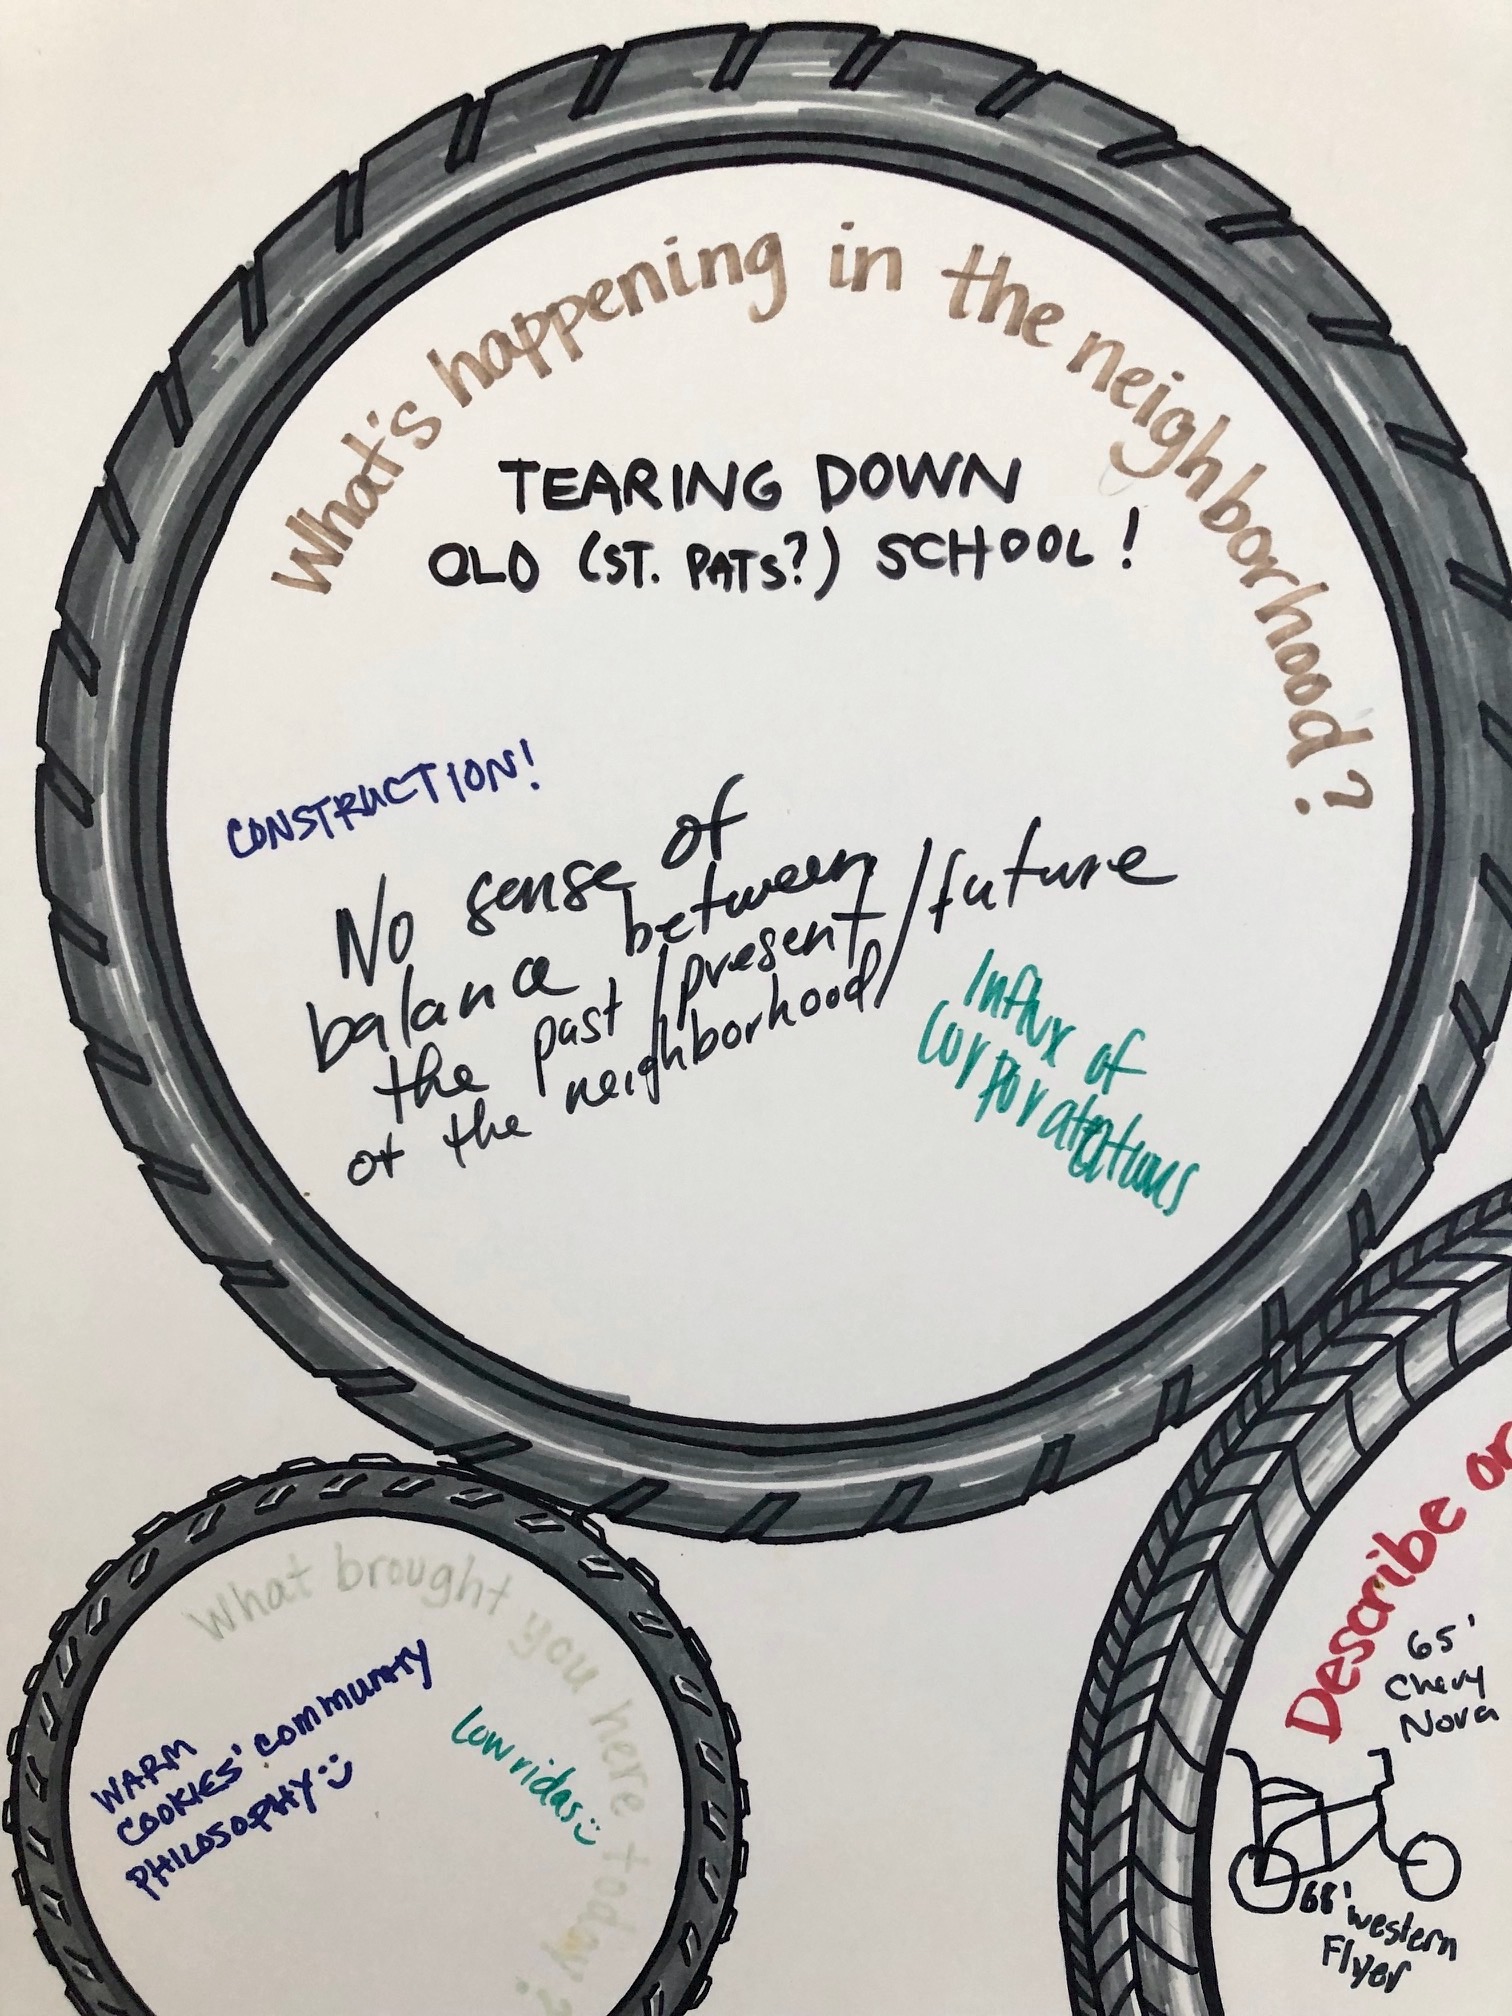 What's happening in the neighborhood?
TEARING DOWN
OLD (ST. PATS?) SCHOOL!
CONSTRUCTION!
No sense of
balance between
the past/present/future
of the neighborhood
Influx of
Corporatations
What brought you here today?
WARM
COOKIES' COMMUNITY
PHILOSOPHY
Lowridas
Describe or
65'
Chevy
Nova
68' Western
Flyer